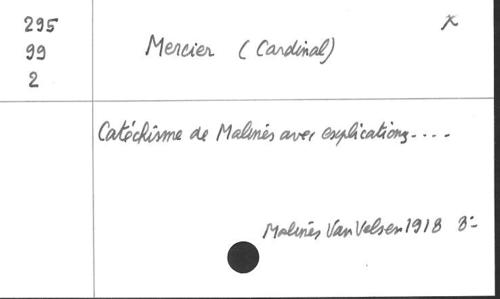 295
99
2
Mercier (Cardinal)
x
Catéchisme de Malinés avec explications....
Malinés Van Velsen 1918 8°